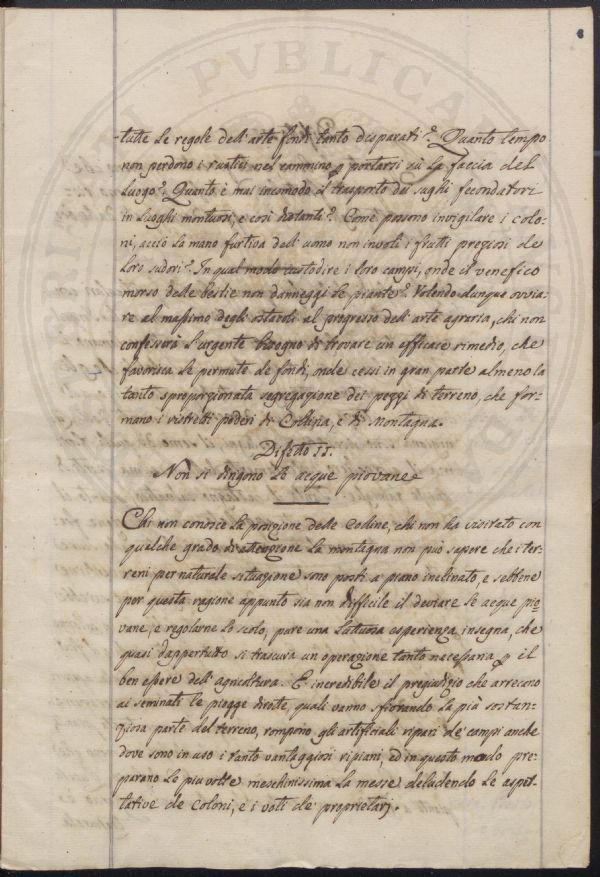 PVBLICA
tutte le regole dell'arte fondi tanto disparati? Quanto tempo
non perdono i rustici nel cammino p portarsi sù la faccia del
luogo? Quanto è mai incomodo il trasporto dei sughi fecondatori
in luoghi montuosi, e così distanti? Come possono invigilare i colo-
ni, acciò la mano furtiva dell'uomo non involi i frutti preziosi de
loro sudori? In qual modo custodire i loro campi, onde il venefico
morso delle bestie non danneggi le piante? Volendo dunque ovvia-
re al massimo degli ostacoli al progresso dell'arte agraria, chi non
confesserà l'urgente bisogno di trovare un efficace rimedio, che
favorisca le permute de fondi, onde cessi in gran parte almeno la
tanto sproporzionata segregazione dei pezzi di terreno, che for-
mano i ristretti poderi di Collina, e di Montagna.
Difetto II.
Non si dirigono le acque piovane
Chi non conosce la posizione delle Colline, chi non ha visitato con
qualche grado di attenzione la montagna non può sapere che i ter-
reni per naturale situazione sono posti a piano inclinato, e sebbene
per questa ragione appunto sia non difficile il deviare le acque pio-
vane, e regolarne lo scolo, pure una esperienza insegna, che
quasi dappertutto si trascura un operazione tanto necessaria p il
ben essere dell'agricoltura. È incredibile il pregiudizio che arrecono
ai seminati le piogge dirotte, quali vanno sfiorando la più sostan-
ziosa parte del terreno, rompono gli artificiali ripari de' campi anche
dove sono in uso i tanto vantaggiosi ripiani ed in questo modo pre-
parano le più volte meschinissima la messe deludendo le aspet-
tative de coloni, e i voti de' proprietarj.